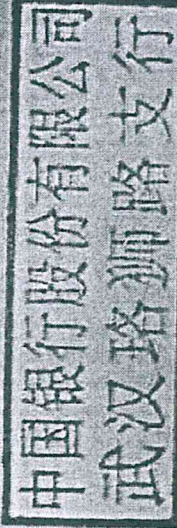 中国银行股份有限公司
武汉珞狮路支行